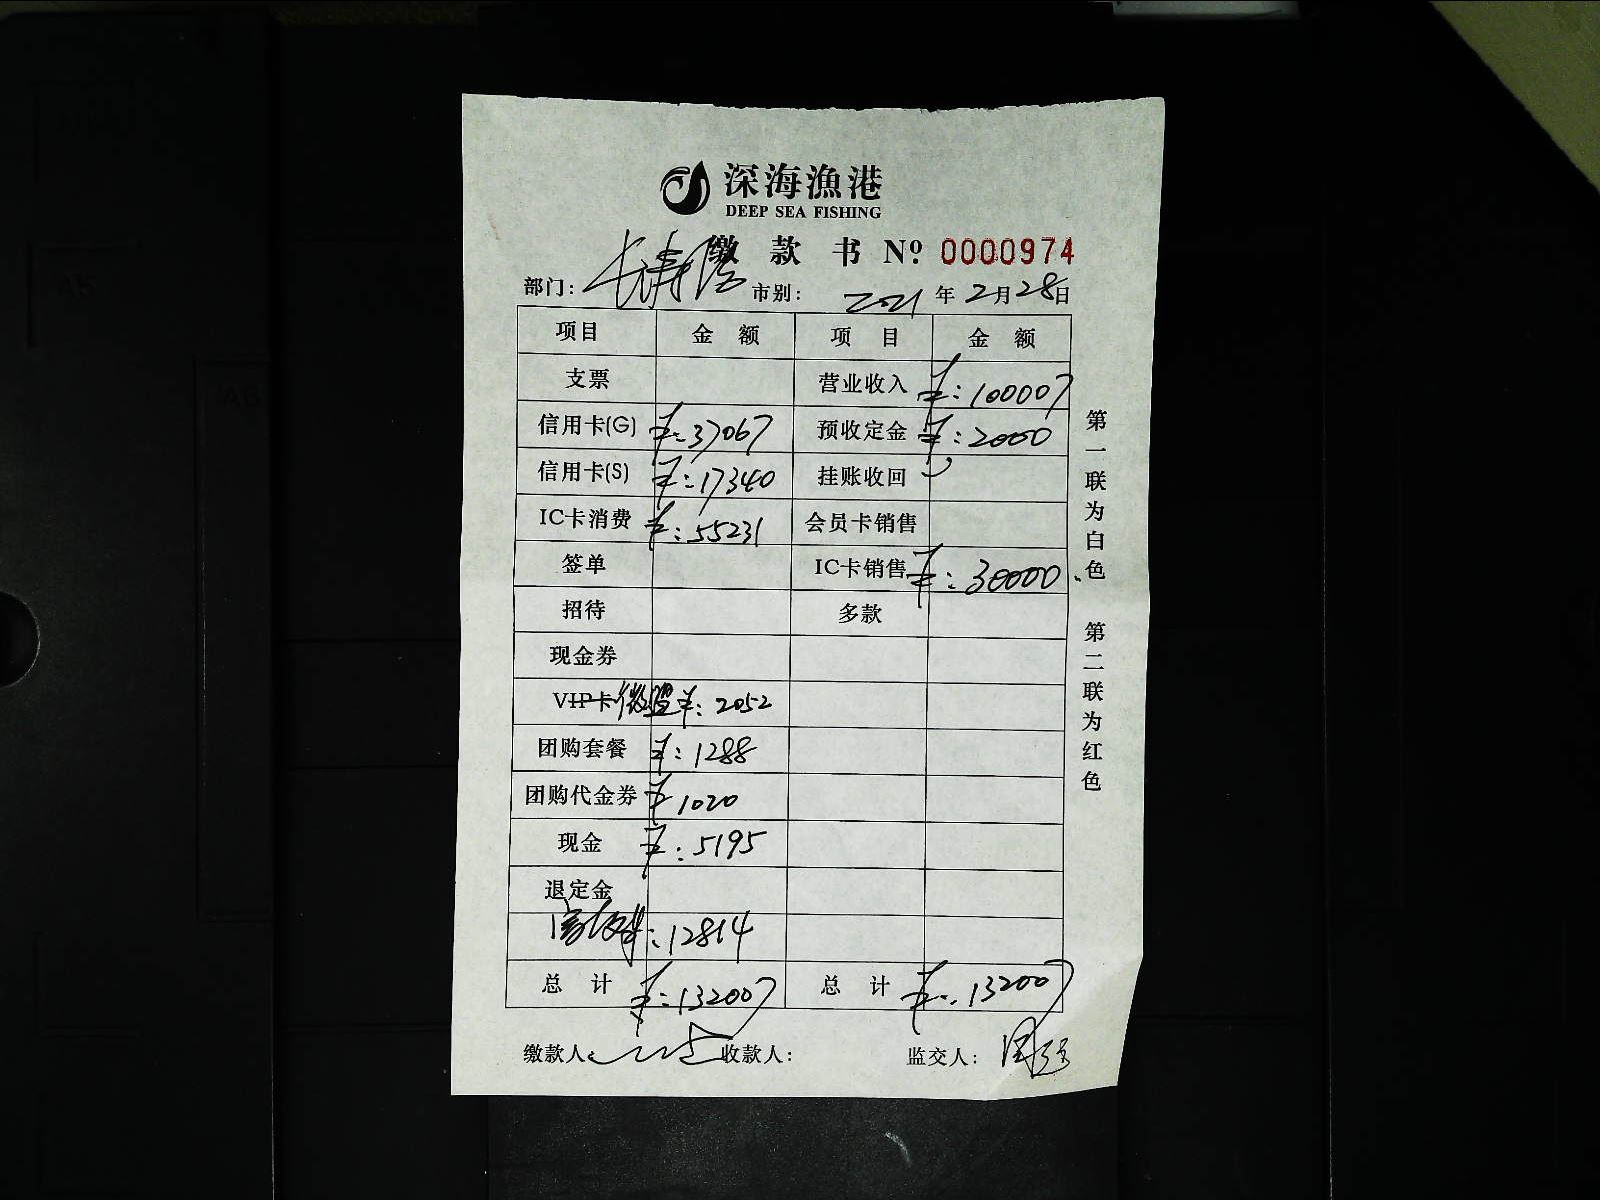 深海漁港
DEEP SEA FISHING
缴款书 Nº 0000974
部门： 市别： 2021年2月28日
项目 金额 项目 金额
支票 营业收入 ¥:100007
信用卡(G) ¥:37067 预收定金 ¥:2000
信用卡(S) ¥:17340 挂账收回
IC卡消费 ¥:55231 会员卡销售
签单 IC卡销售 ¥:30000.
招待 多款
现金券
VIP卡 微盟 ¥:2052
团购套餐 ¥:1288
团购代金券 ¥1020
现金 ¥:5195
退定金
¥:12814
总计 ¥:132007 总计 ¥:132007
缴款人： 收款人： 监交人：
第一联为白色 第二联为红色